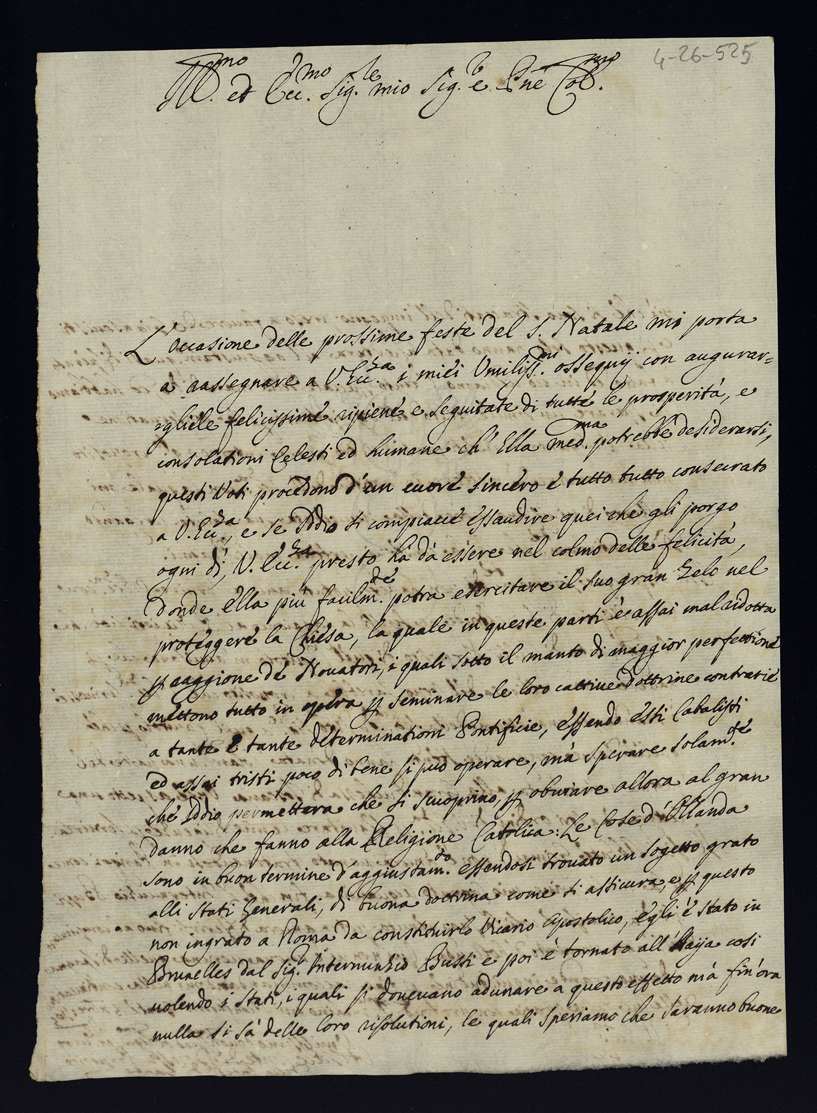 4-26-525
Ill.mo ed Ecc.mo Sig.re mio Sig.r e Pne Col.mo
L'occasione delle prossime feste del S. Natale mi porta
a rassegnare a V. Ecc.za i miei Umiliss.mi ossequij con augurar=
=gliele felicissime ripiene e seguitate di tutte le prosperità, e
consolationi Celesti ed humane ch'Ella med.ma potrebbe desiderarsi,
questi Voti procedono d'un cuore sincero e tutto tutto consecrato
a V. Ecc.za, e se Iddio si compiace essaudire quei che gli porgo
ogni dì, V. Ecc.za presto hà da essere nel colmo delle felicità,
donde ella più facilm.te potra esercitare il suo gran zelo nel
proteggere la Chiesa, la quale in queste parti è assai mal ridotta
p raggione de Novatori, i quali sotto il manto di maggior perfettione
mettono tutto in opera p seminare le loro cattive dottrine contrarie
a tante e tante determinationi Pontificie, essendo esti Cabalisti
ed assai tristi poco di bene si può operare, mà sperare solam.te
che Iddio permettera che si scuoprino p obviare allora al gran
danno che fanno alla Religione Catolica: Le Cose d'Ollanda
sono in buon termine d'aggiustam.to essendosi trovato un sogetto grato
alli Stati Generali, di buona doctrina come si assicura, e p questo
non ingrato a Roma da constituirlo Vicario Apostolico, egli è stato in
Bruelles dal Sig.r Internunzio Bussi e poi è tornato all'Haija così
volendo i Stati, i quali si dovevano adunare a questo effetto mà fin'ora
nulla si sà delle loro risolutioni, le quali speriamo che saranno buone